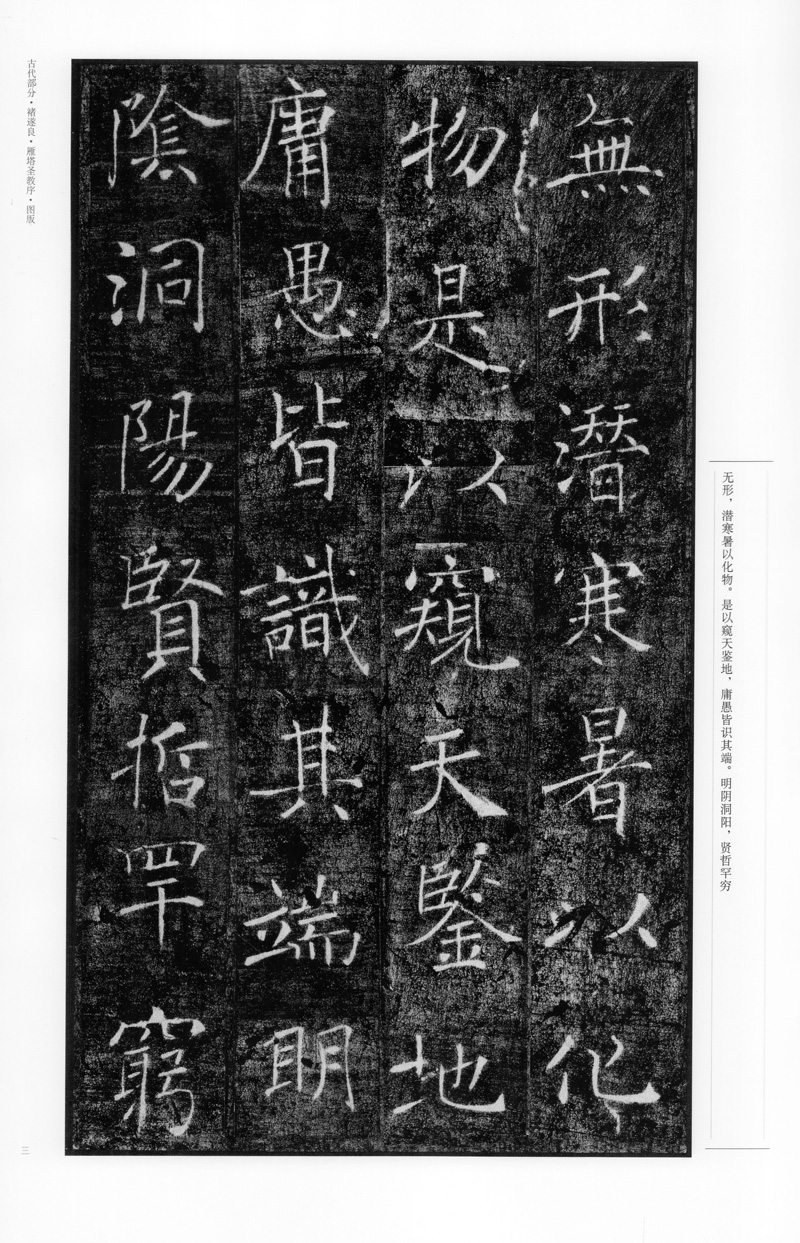 無形潛寒暑以化
物是以窺天鑒地
庸愚皆識其端明
陰洞陽賢哲罕窮
无形，潜寒暑以化物。是以窥天鉴地，庸愚皆识其端。明阴洞阳，贤哲罕穷
古代部分·褚遂良·雁塔圣教序·图版
三